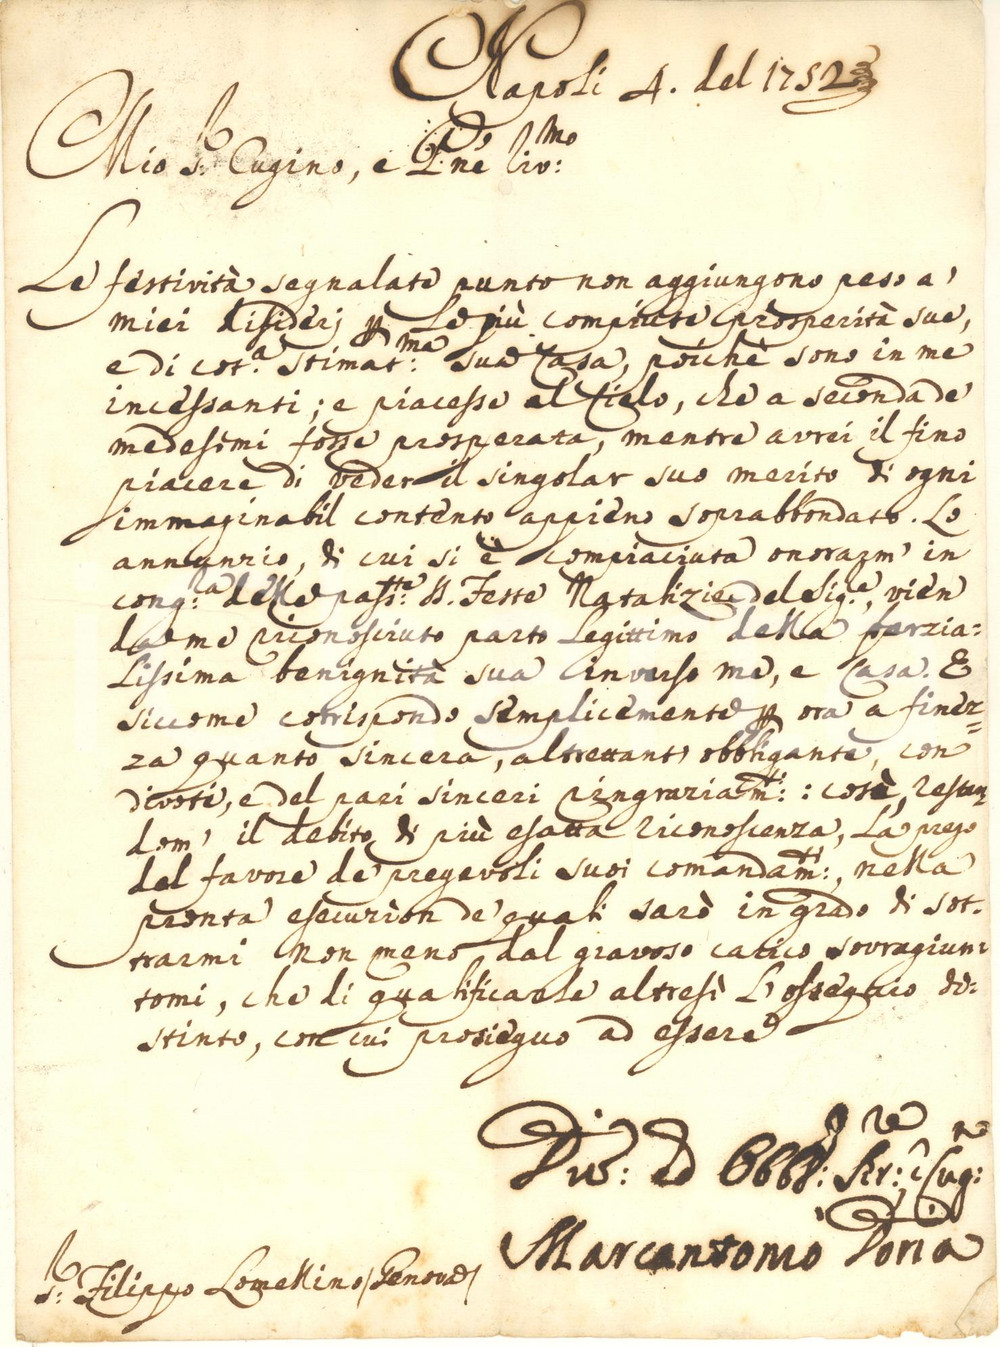 Napoli 4. del 1752
Mio S.r Cugino, e P.ne Riv.mo
Le festività segnalate punto non aggiungono peso a'
miei disiderj per le più compiute prosperità sue,
e di cot.a stimat.ma sua Casa, poichè sono in me
incessanti; e piacesse al Cielo, che a seconda de'
medesimi fosse prosperata, mentre avrei il fino
piacere di veder il singolar suo merito di ogni
immaginabil contento appieno soprabbondato. Lo
annunzio, di cui si è compiaciuta onorarm' in
cong.ra delle pass.te SS. Feste Natalizie del Sig.e, vien
da me riconosciuto parto legittimo della parzia=
lissima benignità sua inverso me, e Casa. E
siccome corrispondo semplicemente per ora a finez=
za quanto sincera, altrettant' obbligante, con
divoti, e del pari sinceri ringraziam.ti: così, restan
dom' il debito di più esatta riconoscenza, La prego
del favore de' pregevoli suoi comandam.ti, nella
pronta esecuzion de' quali sarò in grado di sot=
trarmi non meno dal gravoso carico sovragiun
tomi, che di qualificarle altresì l'ossequio di=
stinto, con cui prosieguo ad essere
Div: ed Obb: Ser:re e Cug:no
Marcantonio Doria
S.r Filippo Lomellino /Genova/